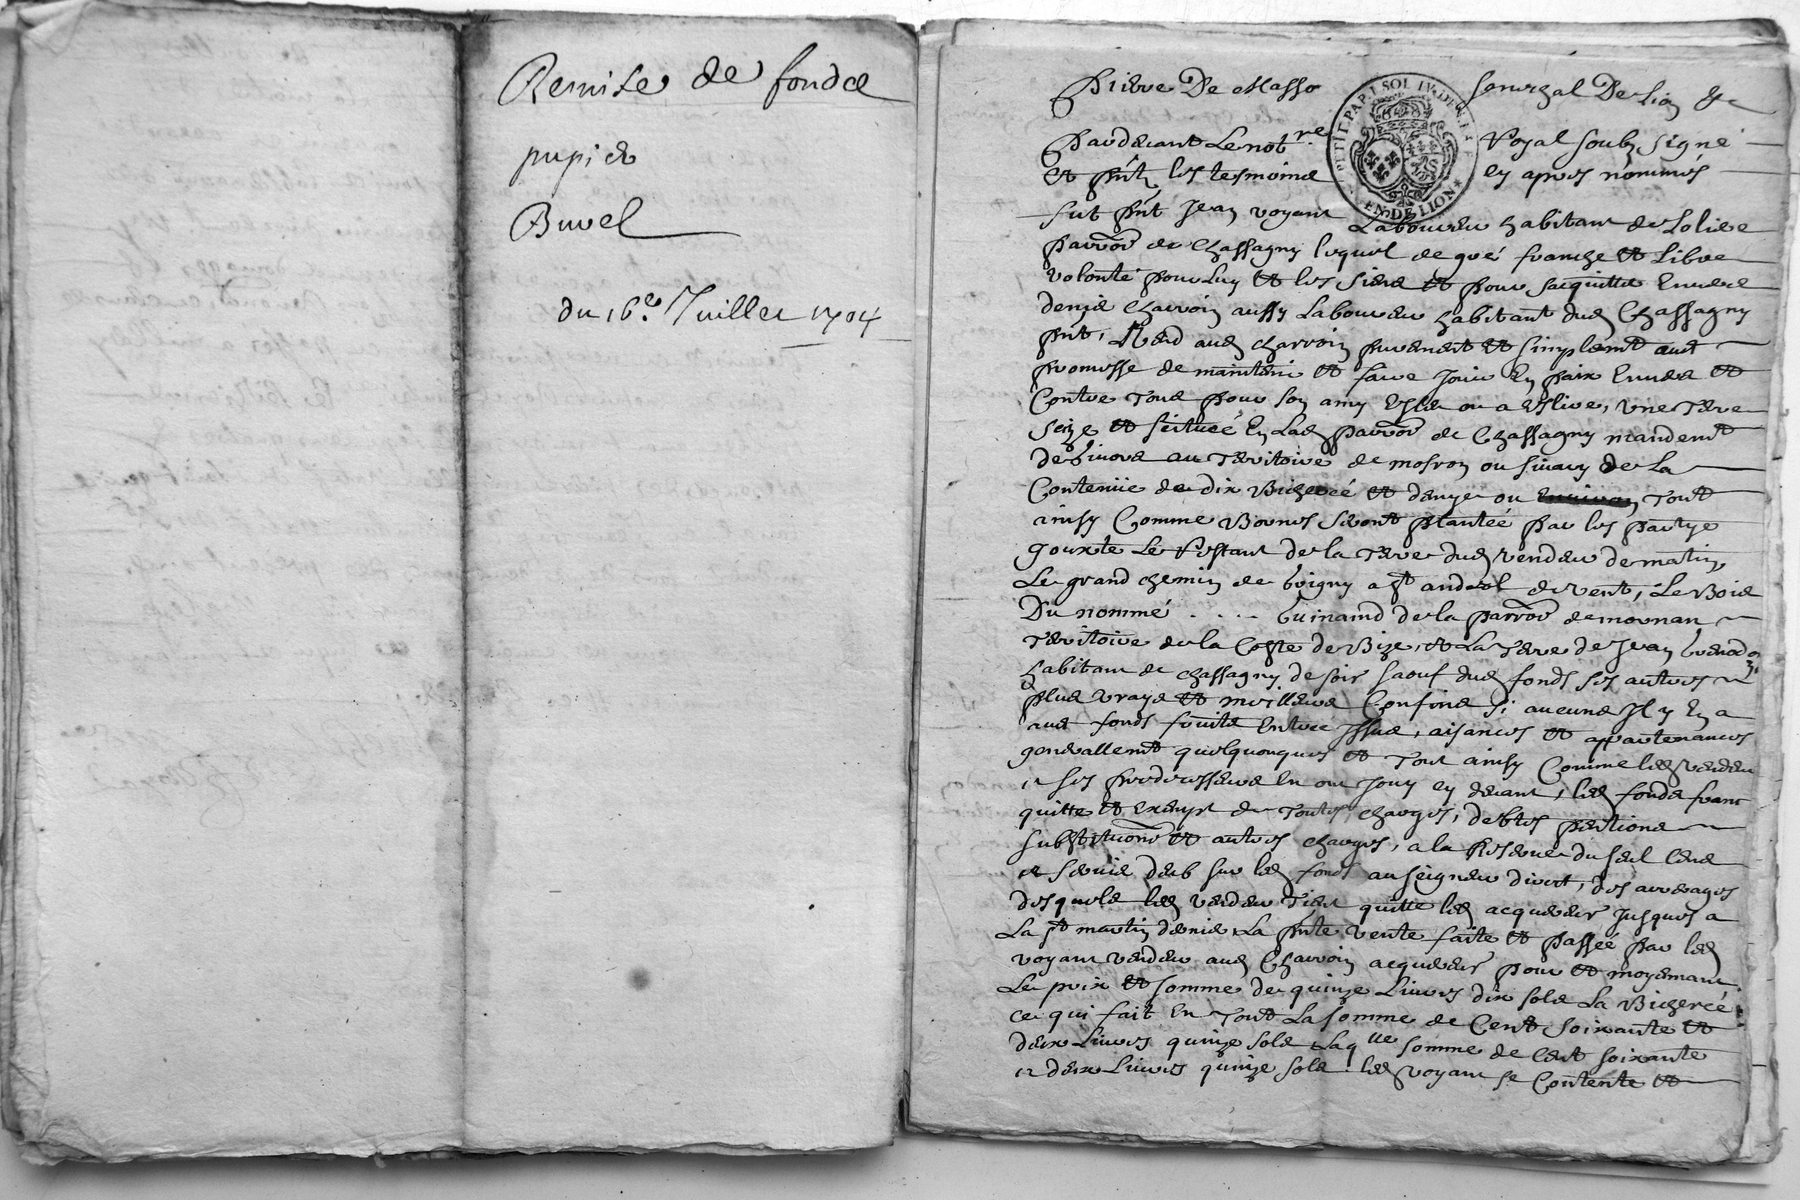 Remise de fondz
pupier
Buvel
du 16e. Juillet 1704
PETIT. PAP. 1. SOL
EN. DE LION
Pierre De Masso Senechal De Lion &c
Pardevant Le notre Royal soubzsigné
et pnt les tesmoins en apres nommés
fut pnt Jean voyant Laboureur habitant de Lolire
parrois de Chassagny lequel de gré franche et Libre
volonté pour luy et les siens et pour sacquitter Envers
denis Charroin aussy Laboureur habitant dud Chassagny
pnt, Vend aud Charroin purement et simplemt avec
promesse de maintenir et faire Jouir En paix Envers et
Contre tous pour son amy Eslu ou a Eslire, une terre
size et scituée En Lad parrois de Chassagny mandemt
de Givors au territoire de mosron ou sivary de La
Contenue de dix Bicherée et demye ou tout
ainsy Comme Bornes seront plantée par les partye
Jouxte Le Restant de la terre dud vendeur de matin
Le grand chemin de Grigny a st andeol de vent, Le Bois
Du nommé . . . . Guinand de la parrois de mornan
territoire de la Coste de Bize, et La terre de Jean
habitant de Chassagny de soir saouf dud fonds ses autres
plus vrays et meilleurs Confins si aucuns Il y En a
avec fonds fruits Entrée Issue, aisances et appartenances
generallemt quelquonques et tout ainsy Comme led vendeur
et ses predecesseurs En ont Jouy cy devant, led fonds franc
quitte et exempt de toutes charges, debtes pentions
substitutions et autres charges, a la Reserve du seul cens
et servis deub sur led fonds au seigneur direct, des arrerages
desquels led vendeur tient quitte led acquereur Jusques a
La st martin dernier, La pnte vente faite et passée par led
voyant vendeur aud Charroin acquereur pour et moyennant
Le prix et somme de quinze Livres dix sols La Bicherée
ce qui fait En tout La somme de Cent soixante et
deux Livres quinze sols Laqlle somme de cent soixante
et deux Livres quinze sols led voyant se Contente et